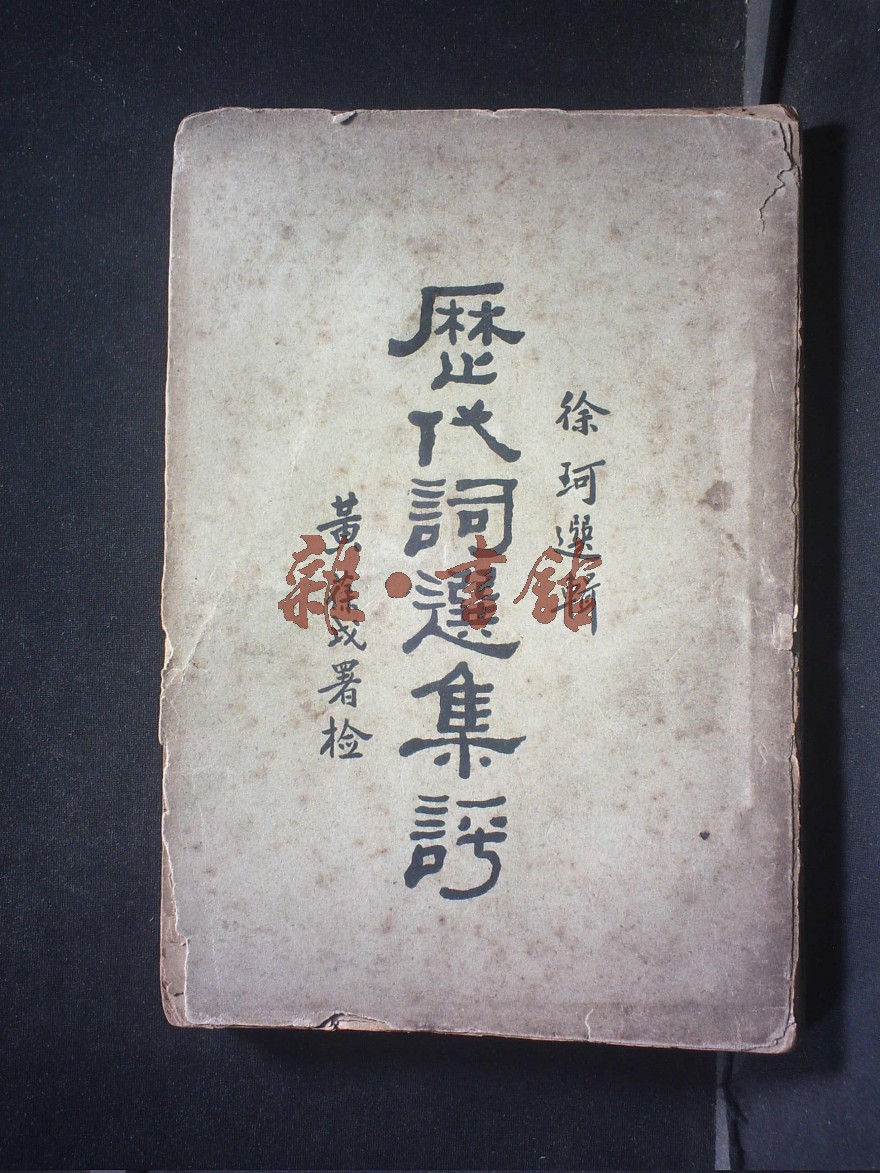 徐珂選輯
歷代詞選集評
黃葆戉署检
雜·書館